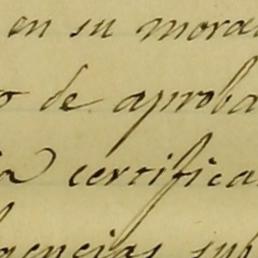 en su mora
o de aproba
a certifica
gencias sub